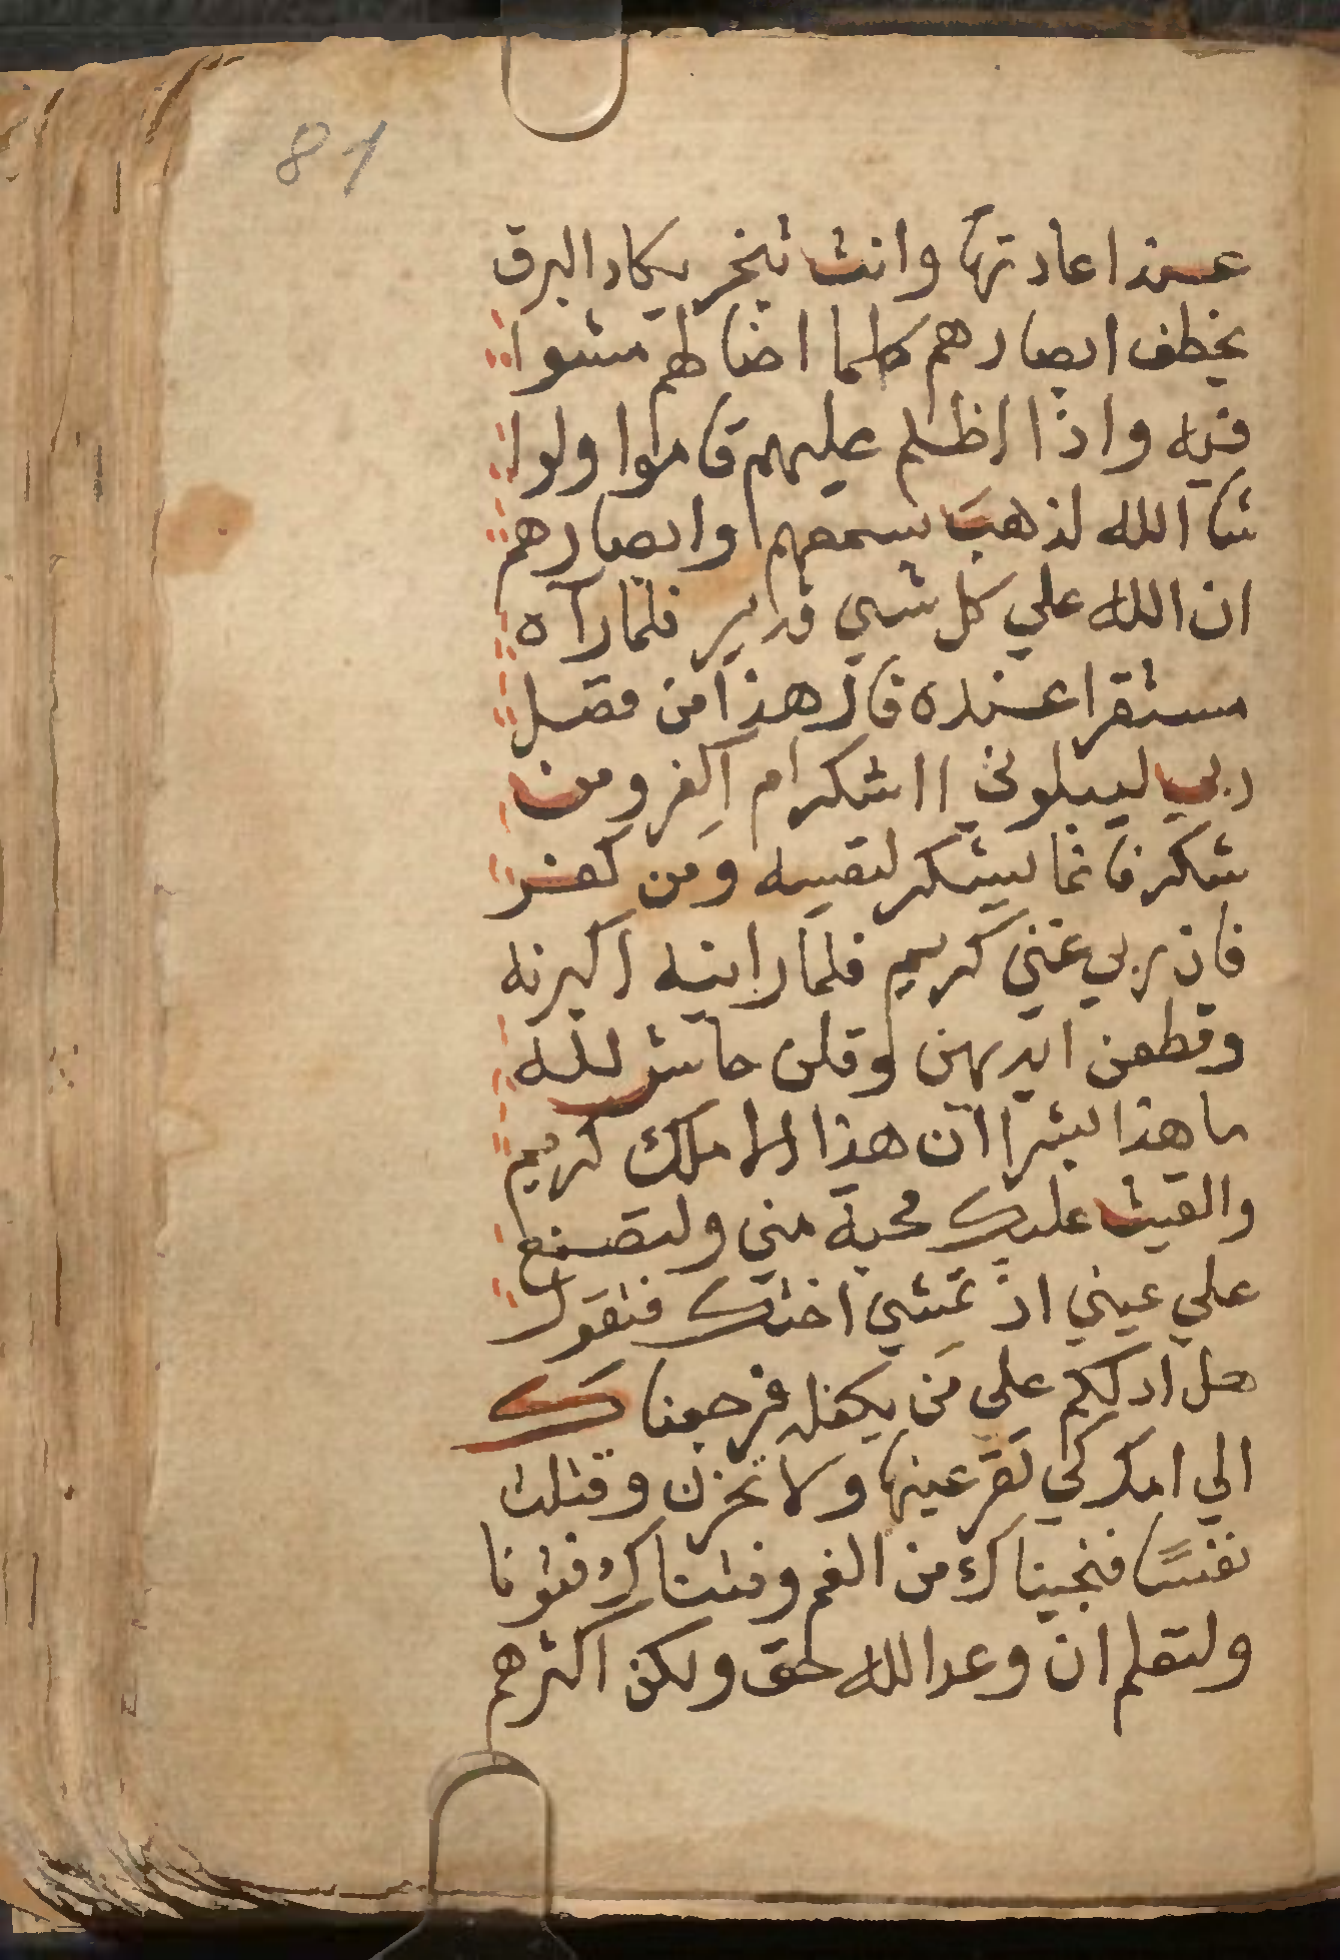 81
عند اعادتها وانت تبخر يكاد البرق
يخطف ابصارهم كلما اضا لهم مشوا
فيه واذا اظلم عليهم قاموا ولوا
شا الله لذهب بسمعهم وابصارهم
ان الله علي كل شي قدير فلما رآه
مستقرا عنده قال هذا من فضل
ربي ليبلوني ااشكر ام اكفر ومن
شكر فانما يشكر لنفسه ومن كفر
فان ربي غني كريم فلما راينه اكبرنه
وقطعن ايديهن وقلن حاش لله
ما هذا بشرا ان هذا الا ملك كريم
والقيت عليك محبة مني ولتصنع
علي عيني اذ تمشي اختك فتقول
هل ادلكم علي من يكفله فرجعناك
الي امك كي تقر عينها ولا تحزن وقتلت
نفسًا فنجيناك من الغم وفتناك فتونا
ولتعلم ان وعد الله حق ولكن اكثرهم